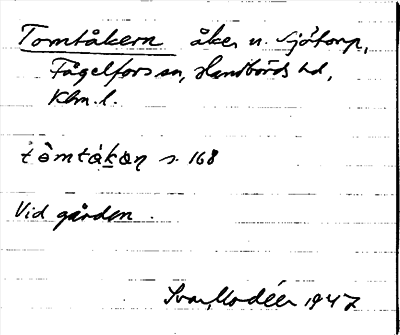 Tomtåkern åker u. Sjötorp,
Fågelfors sn, Handbörds hd,
Klm. l.
tòmtákəṇ s. 168
Vid gården.
Ivar Modéer 1947